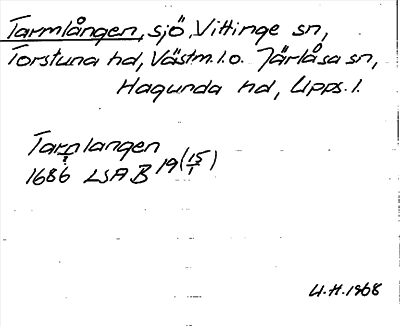 Tarmlången, sjö, Vittinge sn,
Torstuna hd, Västm. l. o. Järlåsa sn,
Hagunda hd, Upps. l.
Tarnlangen
?
1686 LSA B 19 (15/1)
U.H. 1968